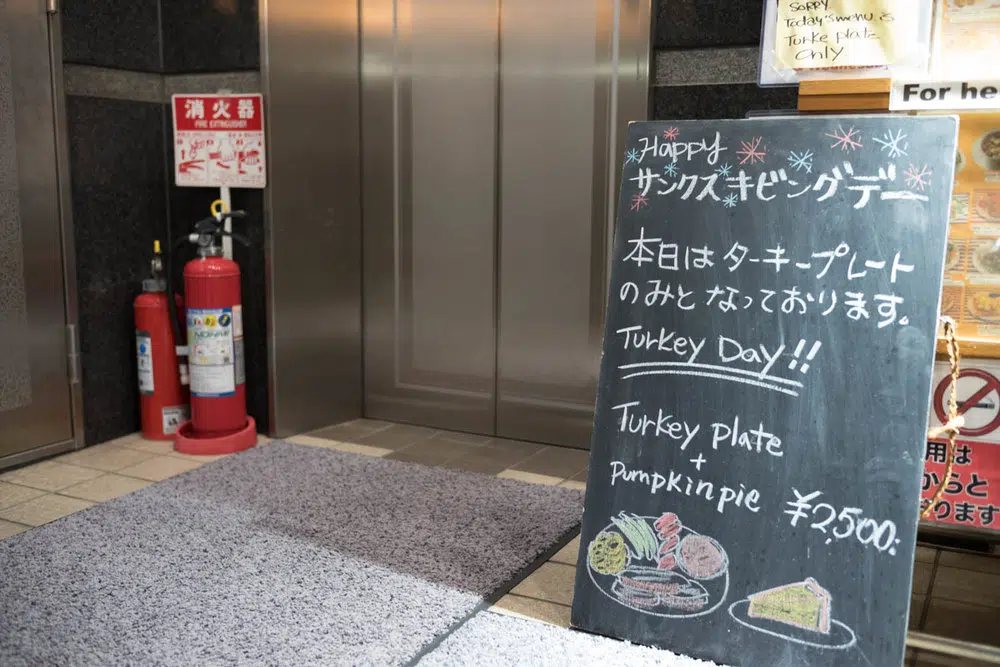 消火器
FIRE EXTINGUISHER
SORRY
Today's menu is
Turke plate
Only
For he
Happy
サンクスキビングデー
本日はターキープレート
のみとなっております。
Turkey Day!!
Turkey plate
+
Pumpkin pie
¥2,500.
用は
からと
ります